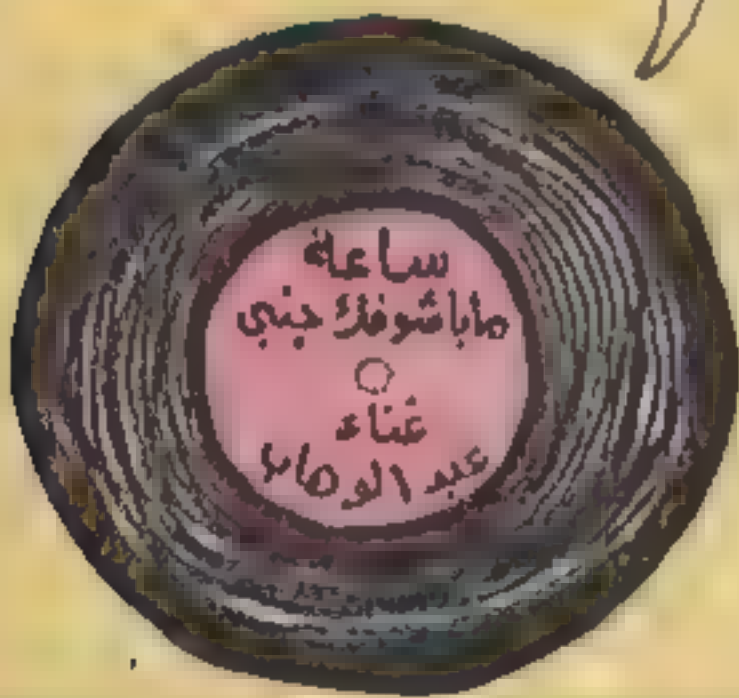 ساعة
ماباشوفك جنبي
غناء
عبد الوهاب